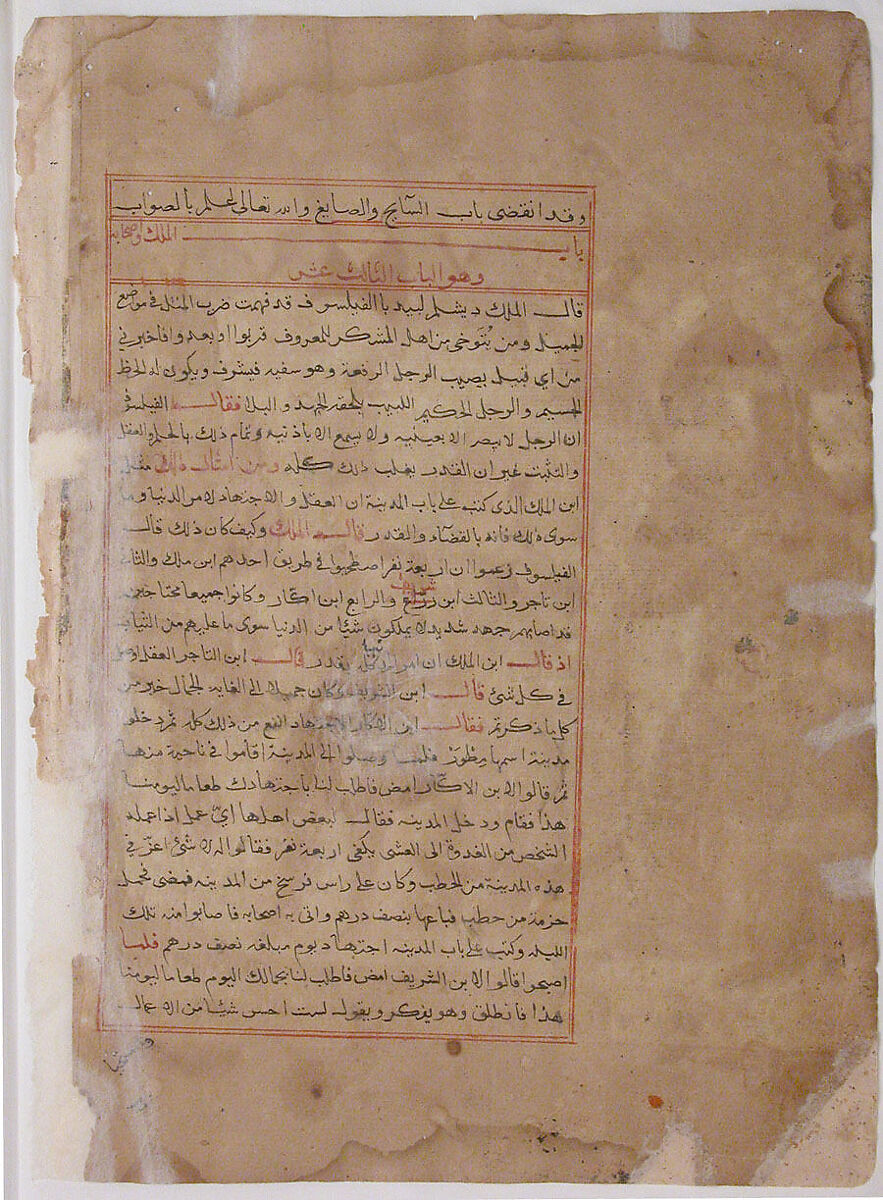 وقد انقضى باب السآيح والصايغ والله تعالى اعلم بالصواب
باب الملك واصحابه
وهو الباب الثالث عشر
قال الملك ديشلم لبيدبا الفيلسوف قد فهمت ضرب المثل في موضع
الجميل ومن يتوخى من اهل الشكر المعروف قربوا او بعدوا فاخبرني
من اي قبيل يصيب الرجل الرفعة وهو سفيه فيشرف ويكون له الحظ
الجسيم والرجل الحكيم اللبيب يلحقه الجهد والبلا فقال الفيلسوف
ان الرجل لا يبصر الا بعينيه ولا يسمع الا باذنيه وتمام ذلك بالحلم والعقل
والتثبت غير ان القدر يغلب ذلك كله ومن امثال ذلك مثل
ابن الملك الذى كتب على باب المدينة ان العقل والاجتهاد لامر الدنيا وما
سوى ذلك فانه بالقضآء والقدر قال الملك وكيف كان ذلك قال
الفيلسوف زعموا ان اربعة نفر اصطحبوا في طريق احدهم ابن ملك والثاني
ابن تاجر والثالث ابن شريف والرابع ابن اكار وكانوا جميعا محتاجين
قد اصابهم جهد شديد لا يملكون شئا من الدنيا سوى ما عليهم من الثياب
اذ قال ابن الملك ان امر الدنيا كله بقدر قال ابن التاجر العقل افضل
في كل شئ قال ابن الشريف وكان جميلا الى الغايه الجمال خير من
كل ما ذكرتم فقال ابن الاكار الاجتهاد انفع من ذلك كله ثم دخلوا
مدينة اسمها مطور فلما وصلوا الى المدينة اقاموا في ناحية منها
ثم قالوا لابن الاكار امض فاطلب لنا باجتهادك طعاما ليومنا
هذا فقام ودخل المدينه فقال لبعض اهلها اي عمل اذا عمله
الشخص من الغدوة الى العشى يكفى اربعة نفر فقالوا له لا شئ اعز في
هذه المدينة من الحطب وكان على راس فرسخ من المدينه فمضى فحمل
حزمة من حطب فباعها بنصف درهم واتى به اصحابه فاصابوا منه تلك
الليله وكتب على باب المدينه اجتهاد يوم مبلغه نصف درهم فلما
اصبحوا قالوا لابن الشريف امض فاطلب لنا بجمالك اليوم طعاما ليومنا
هذا فانطلق وهو يفكر ويقول لست احسن شئا من الاعمال